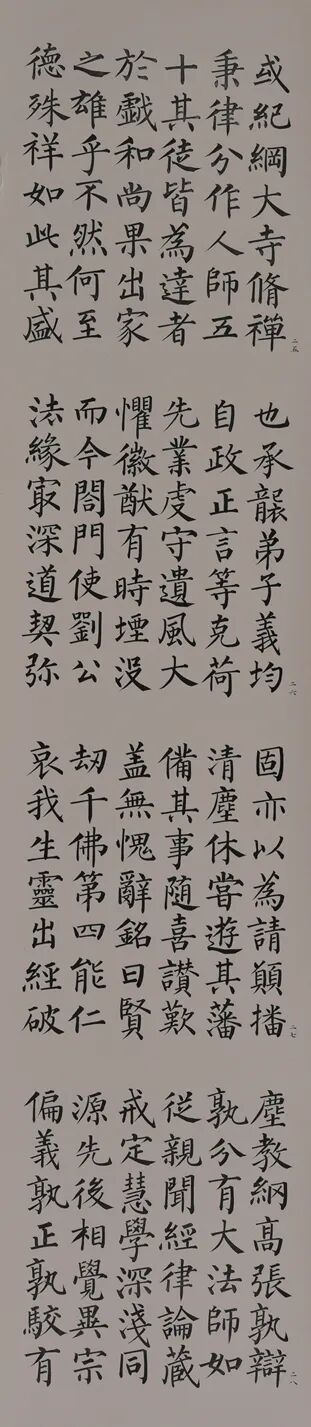 或紀綱大寺脩禪
秉律分作人師五
十其徒皆為達者
於戲和尚果出家
之雄乎不然何至
德殊祥如此其盛
二五
也承襲弟子義均
自政正言等克荷
先業虔守遺風大
懼徽猷有時堙没
而今閤門使劉公
法緣冣深道契弥
二六
固亦以為請願播
清塵休甞遊其藩
備其事隨喜讚歎
盖無愧辭銘曰賢
劫千佛第四能仁
哀我生靈出經破
二七
塵教網高張孰辯
孰分有大法師如
從親聞經律論藏
戒定慧學深淺同
源先後相覺異宗
偏義孰正孰駮有
二八